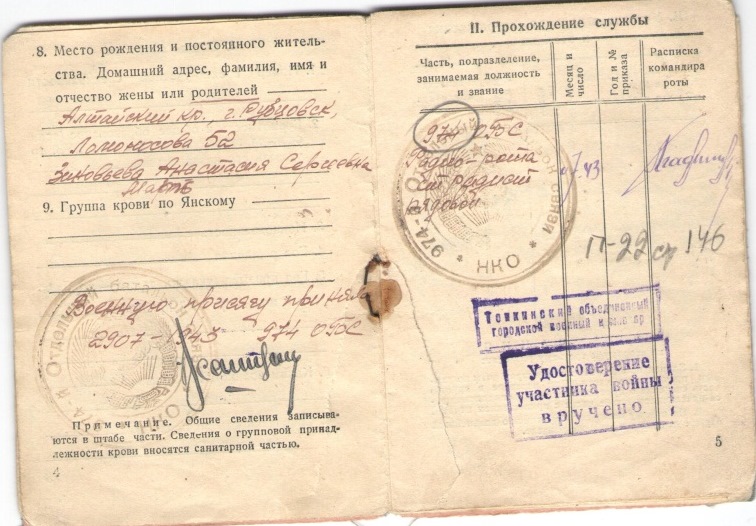 8. Место рождения и постоянного житель-
ства. Домашний адрес, фамилия, имя и
отчество жены или родителей
Алтайский кр., г. Рубцовск,
Ломоносова 52
Зиновьева Анастасия Сергеевна
мать
9. Группа крови по Янскому
Военную присягу приняла
2907-943 974 ОБС
Примечание. Общие сведения записыва-
ются в штабе части. Сведения о групповой принад-
лежности крови вносятся санитарной частью.
4
II. Прохождение службы
Часть, подразделение,
занимаемая должность
и звание
Месяц и
число
Год и №
приказа
Расписка
командира
роты
974 ОБС
Радио-рота
радист
рядовой
43
974-й Отдельный связи
НКО
П-22 146
объединенный
городской военный
Удостоверение
участника войны
вручено
5